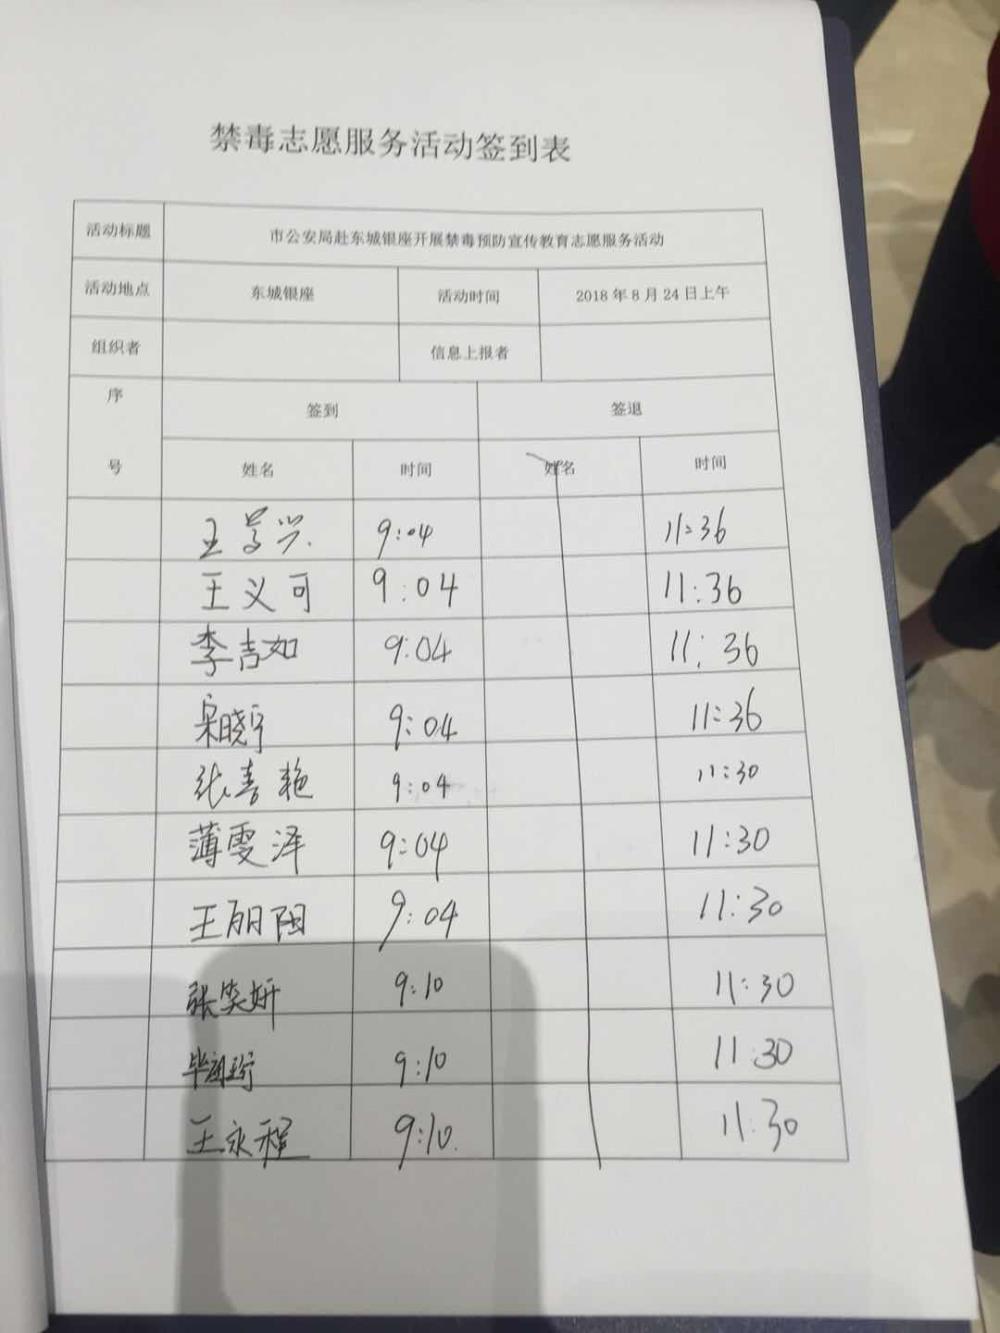 禁毒志愿服务活动签到表
活动标题 市公安局赴东城银座开展禁毒预防宣传教育志愿服务活动
活动地点 东城银座 活动时间 2018年8月24日上午
组织者 信息上报者
序号 签到 签退
姓名 时间 姓名 时间
9:04 11:36
王义可 9:04 11:36
李吉如 9:04 11:36
宋晓宇 9:04 11:36
张喜艳 9:04 11:30
薄雯泽 9:04 11:30
王丽阳 9:04 11:30
张笑妍 9:10 11:30
9:10 11:30
王永程 9:10 11:30